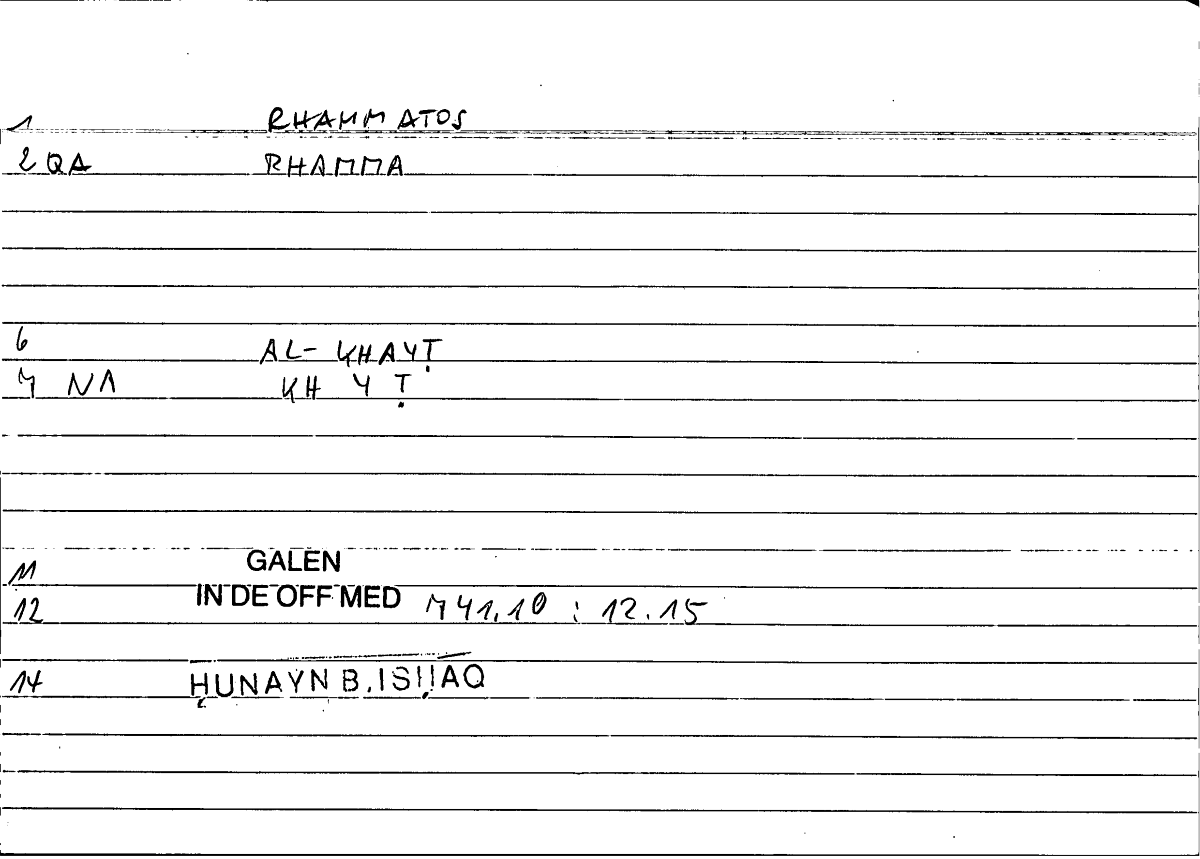 1 RHAMMATOS
2 QA RHAMMA
6 AL- KHAYṬ
7 NA KH Y Ṭ
11 GALEN
12 IN DE OFF MED 741.10 : 12.15
14 ḤUNAYN B. ISḤAQ